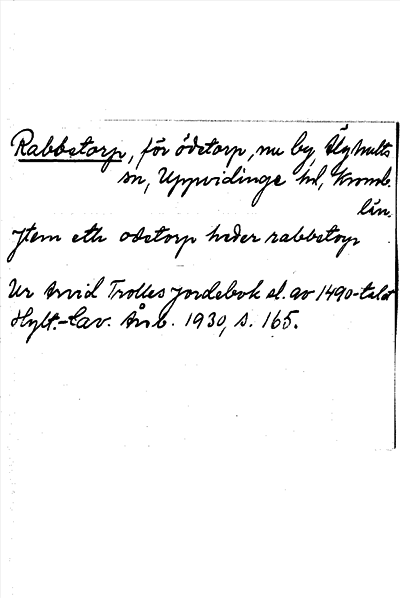 Rabbetorp, för ödetorp, nu by, Älghults
sn, Uppvidinge hd, Kronob.
län.
Jtem ett odetorp heder rabbetorp
Ur Arvid Trolles jordebok sl. av 1490-talet
Hylt.-Cav. Årsb. 1930, s. 165.